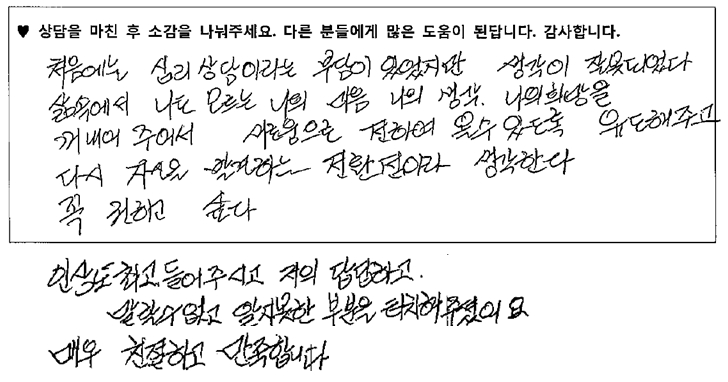 ♥ 상담을 마친 후 소감을 나눠주세요. 다른 분들에게 많은 도움이 된답니다. 감사합니다.
처음에는 심리상담이라는 부담이 있었지만 생각이 잘못되었다
삶속에서 나도 모르는 나의 마음 나의 생각. 나의희망을
꺼내어 주어서 새로움으로 전하여 올수 있도록 유도해주고
다시 자신을 발견하는 전환점이라 생각한다
꼭 권하고 싶다
인상도 좋고 들어주시고 저의 답답하고.
알릴수 없고 알지못한 부분을 터치해주셨어요
매우 친절하고 만족합니다